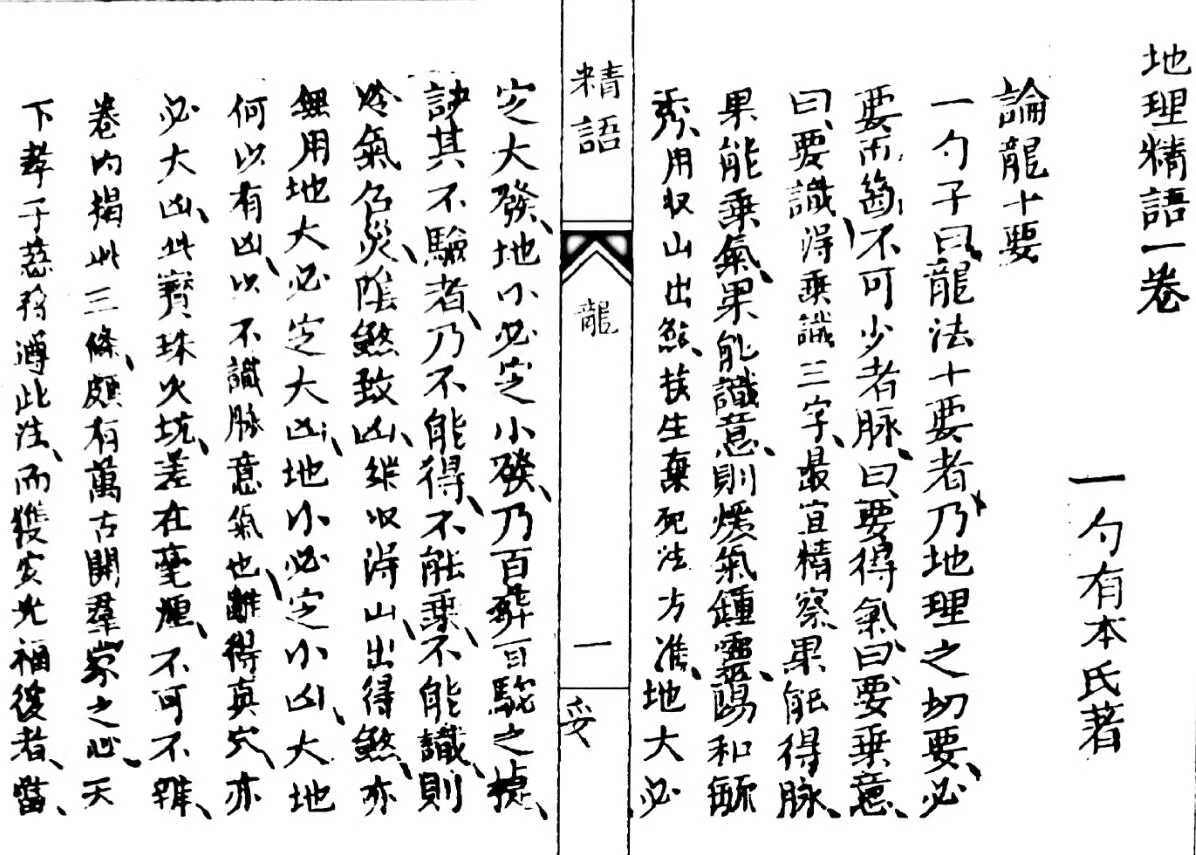 地理精語一卷
一勺有本氏著
論龍十要
一勺子曰龍法十要者乃地理之切要必
要而不可少者脉曰要得氣曰要乘意
曰要識得乘識三字最宜精察果能得脉
果能乘氣果能識意則煖氣鍾靈陽和毓
秀用收山出煞扶生棄死法方准地大必
精語
龍
一
定大發地小必定小發乃百發百驗之捷
訣其不驗者乃不能得不能乘不能識則
冷氣召災陰煞致凶縱收得山出得煞亦
無用地大必定大凶地小必定小凶大地
何以有凶以不識脉意氣也雖得真穴亦
必大凶此寶珠火坑差在毫厘不可不辨
卷內揭此三條頗有萬古開羣蒙之心天
下孝子慈孫遵此法而獲安允福後者當